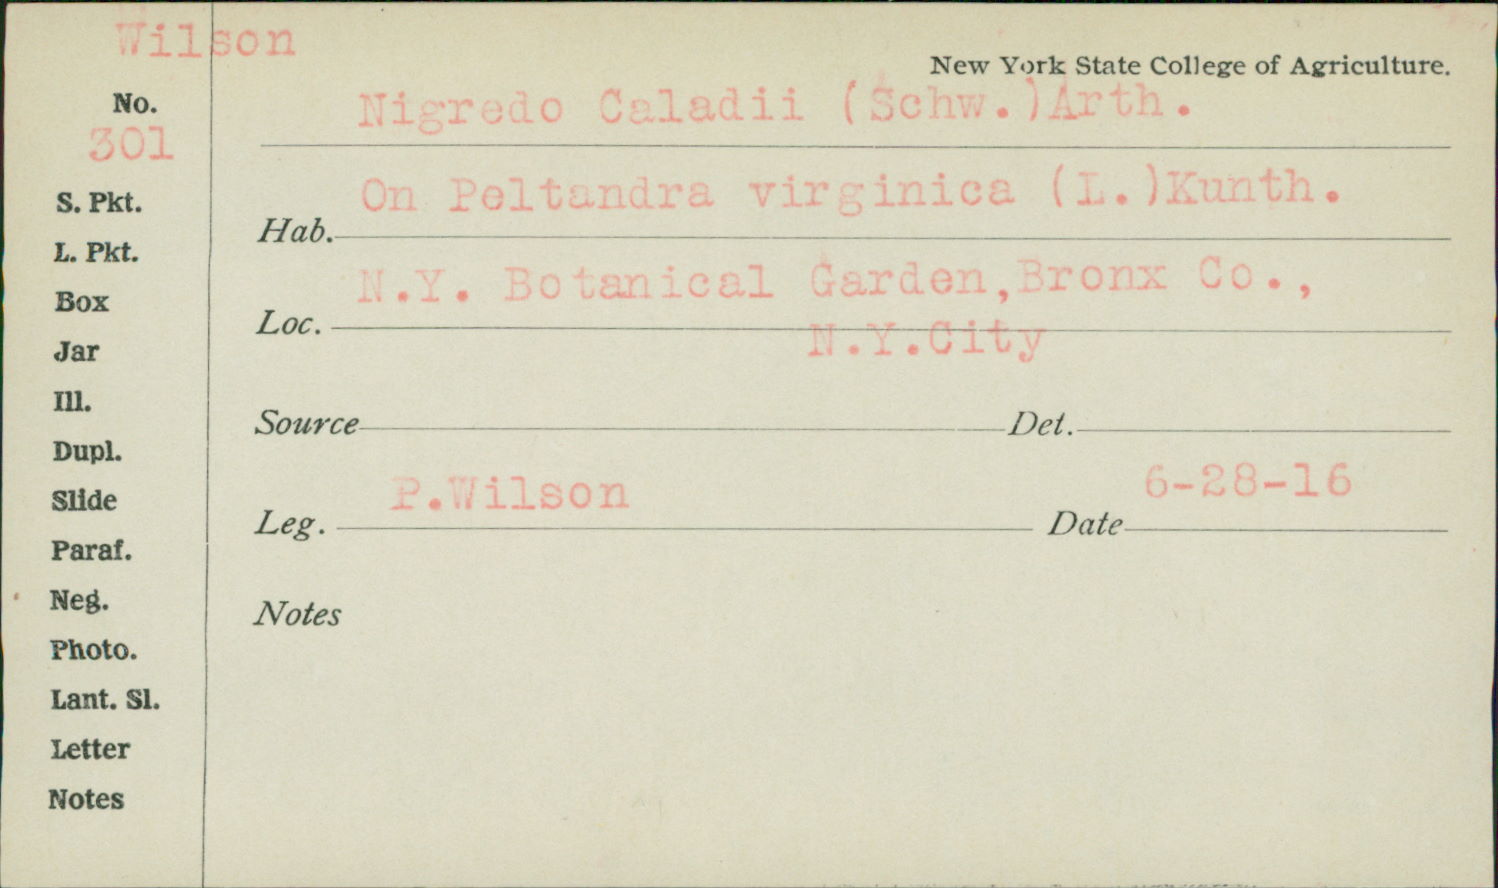 Wilson
New York State College of Agriculture.
No.
301
Nigredo Caladii (Schw.)Arth.
On Peltandra virginica (L.)Kunth.
Hab.
N.Y. Botanical Garden,Bronx Co.,
Loc.
N.Y.City
Source Det.
P.Wilson 6-28-16
Leg. Date
Notes
S. Pkt.
L. Pkt.
Box
Jar
Ill.
Dupl.
Slide
Paraf.
Neg.
Photo.
Lant. Sl.
Letter
Notes